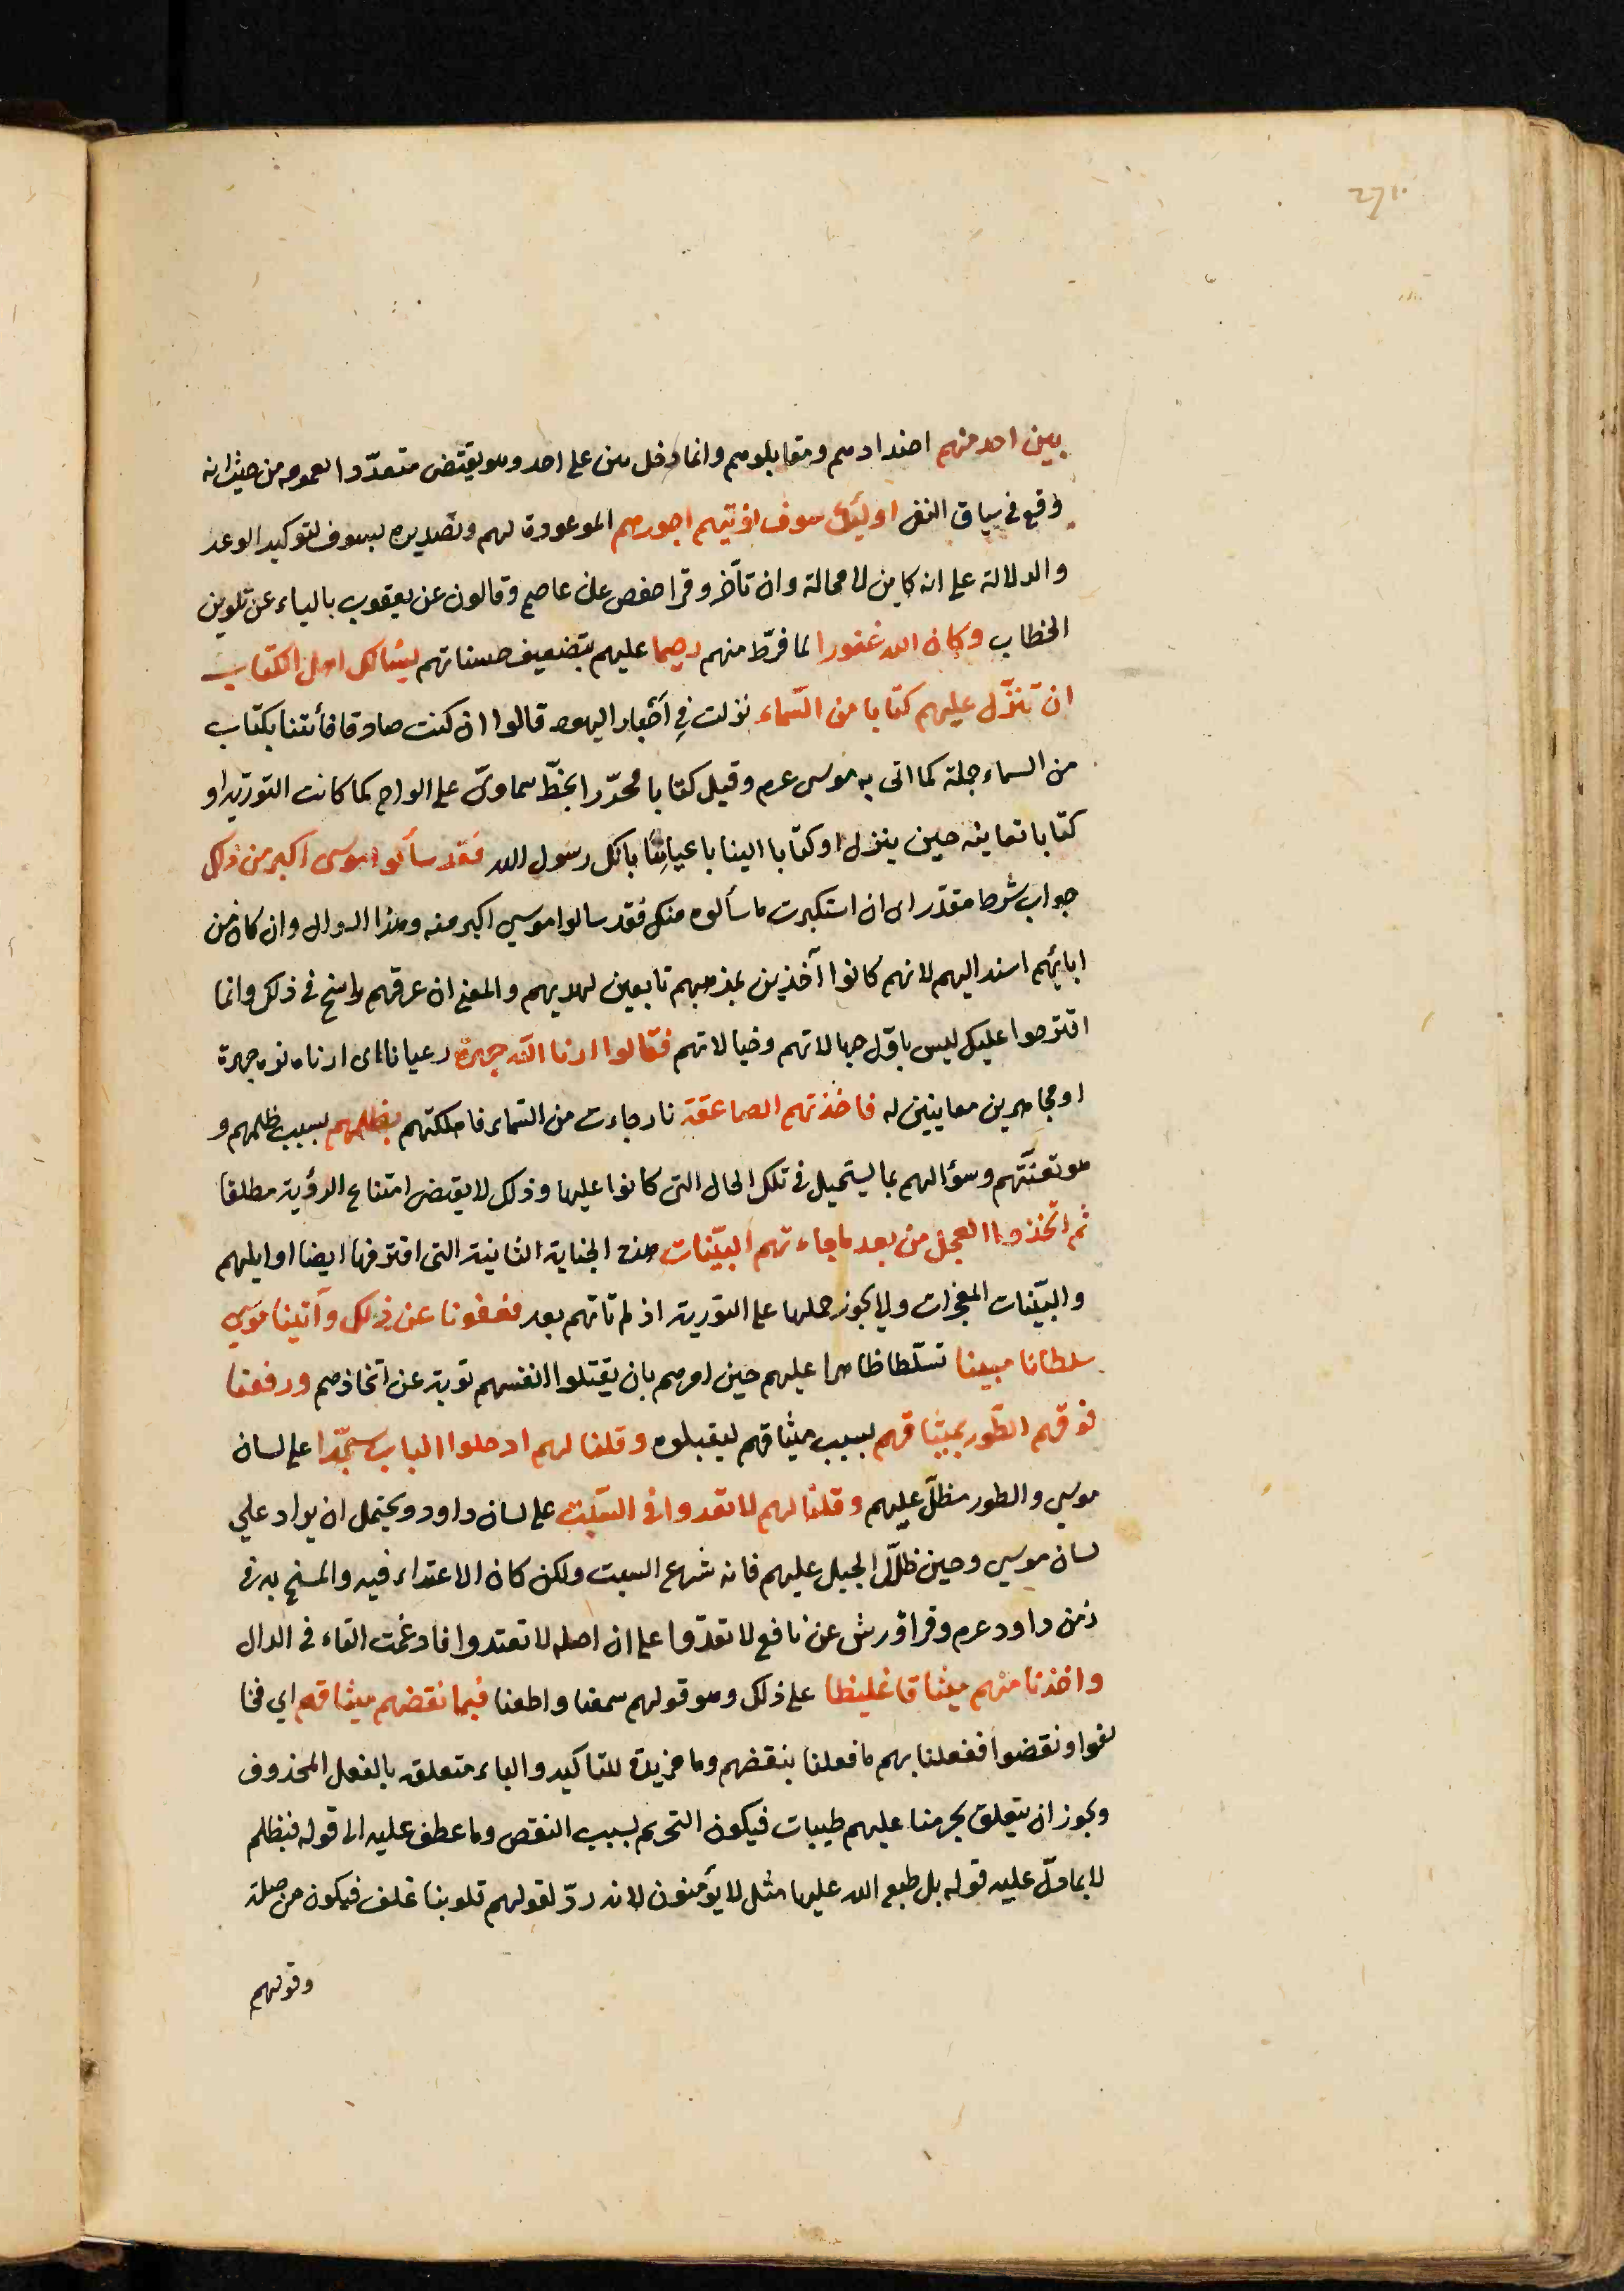 271
بين احد منهم اضدادهم ومقابلوهم وانما دخل بين على احد وهو يقتضى متعدّدا لعمومه من حيث انه
وقع فى سياق النفى اولئك سوف نؤتيهم اجورهم الموعودة لهم وتصديره بسوف لتوكيد الوعد
والدلالة على انه كاين لا محالة وان تأخر وقرا حفص عن عاصم وقالون عن يعقوب بالياء عن تلوين
الخطاب وكان الله غفورا لما فرّط منهم رحيما عليهم بتضعيف حسناتهم يسالك اهل الكتاب
ان تنزّل عليهم كتابا من السّماء نزلت فى أحبار اليهود قالوا ان كنت صادقا فأتنا بكتاب
من السماء جملة كما اتى به موسى عم وقيل كتابا محرّرا بخطّ سماوىّ على الواح كما كانت التورية او
كتابا نعاينه حين ينزل او كتابا الينا باعياننا بانك رسول الله فقد سألوا موسى اكبر من ذلك
جواب شرط مقدّر اى ان استكبرت ما سألوه منك فقد سالوا موسي اكبر منه وهذا السوال وان كان من
ابائهم اسند اليهم لانهم كانوا آخذين بمذهبهم تابعين لهديهم والمعنى ان عرقهم راسخ فى ذلك وانما
اقترحوا عليك ليس باوّل جهالاتهم وخيالاتهم فقالوا ارنا الله جهرة عيانا اى ارناه نره جهرة
او مجاهرين معاينين له فاخذتهم الصاعقة نار جاءت من السّماء فاهلكتهم بظلمهم بسبب ظلمهم و
هو تعنّتهم وسؤالهم بما يستحيل فى تلك الحال التى كانوا عليها وذلك لا يقتضى امتناع الرؤية مطلقا
ثم اتخذوا العجل من بعد ما جاءتهم البيّنات هذه الجناية الثانية التى اقترفها ايضا اوايلهم
والبيّنات المعجزات ولا يجوز حملها على التورية اذ لم تاتهم بعد فعفونا عن ذلك وآتينا موسي
سلطانا مبينا تسلّطا ظاهرا عليهم حين امرهم بان يقتلوا انفسهم توبة عن اتخاذهم ورفعنا
فوقهم الطّور بميثاقهم بسبب ميثاقهم ليقبلوه وقلنا لهم ادخلوا الباب سجّدا على لسان
موسي والطور مظلّ عليهم وقلنا لهم لا تعدوا فى السّبت على لسان داود ويحتمل ان يراد علي
لسان موسي وحين ظلّل الجبل عليهم فانه شرع السبت ولكن كان الاعتداء فيه والمسخ به فى
زمن داود عم وقرا ورش عن نافع لا تعدّوا على ان اصله لا تعتدوا فادغمت التاء فى الدال
واخذنا منهم ميثاقا غليظا على ذلك وهو قولهم سمعنا واطعنا فبما نقضهم ميثاقهم اي فخا
لفوا ونقضوا ففعلنا بهم ما فعلنا بنقضهم وما مزيدة للتاكيد والباء متعلقه بالفعل المحذوف
ويجوز ان يتعلق بحرمنا عليهم طيبات فيكون التحريم بسبب النقض وما عطف عليه الى قوله فبظلم
لا بما دلّ عليه قوله بل طبع الله عليها مثل لا يؤمنون لانه ردّ لقولهم قلوبنا غلف فيكون من صلة
وقولهم